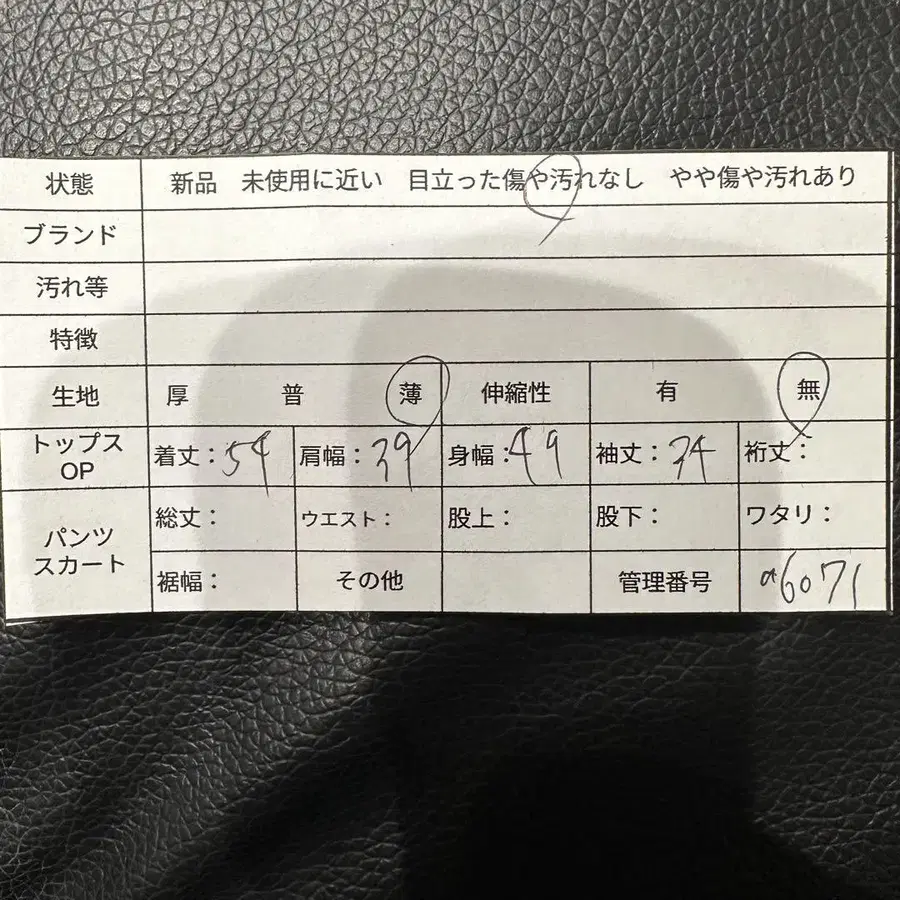 状態 新品 未使用に近い 目立った傷や汚れなし やや傷や汚れあり
ブランド
汚れ等
特徴
生地 厚 普 薄 伸縮性 有 無
トップス OP 着丈：54 肩幅：39 身幅：49 袖丈：24 裄丈：
パンツ スカート 総丈： ウエスト： 股上： 股下： ワタリ：
裾幅： その他 管理番号 a6071